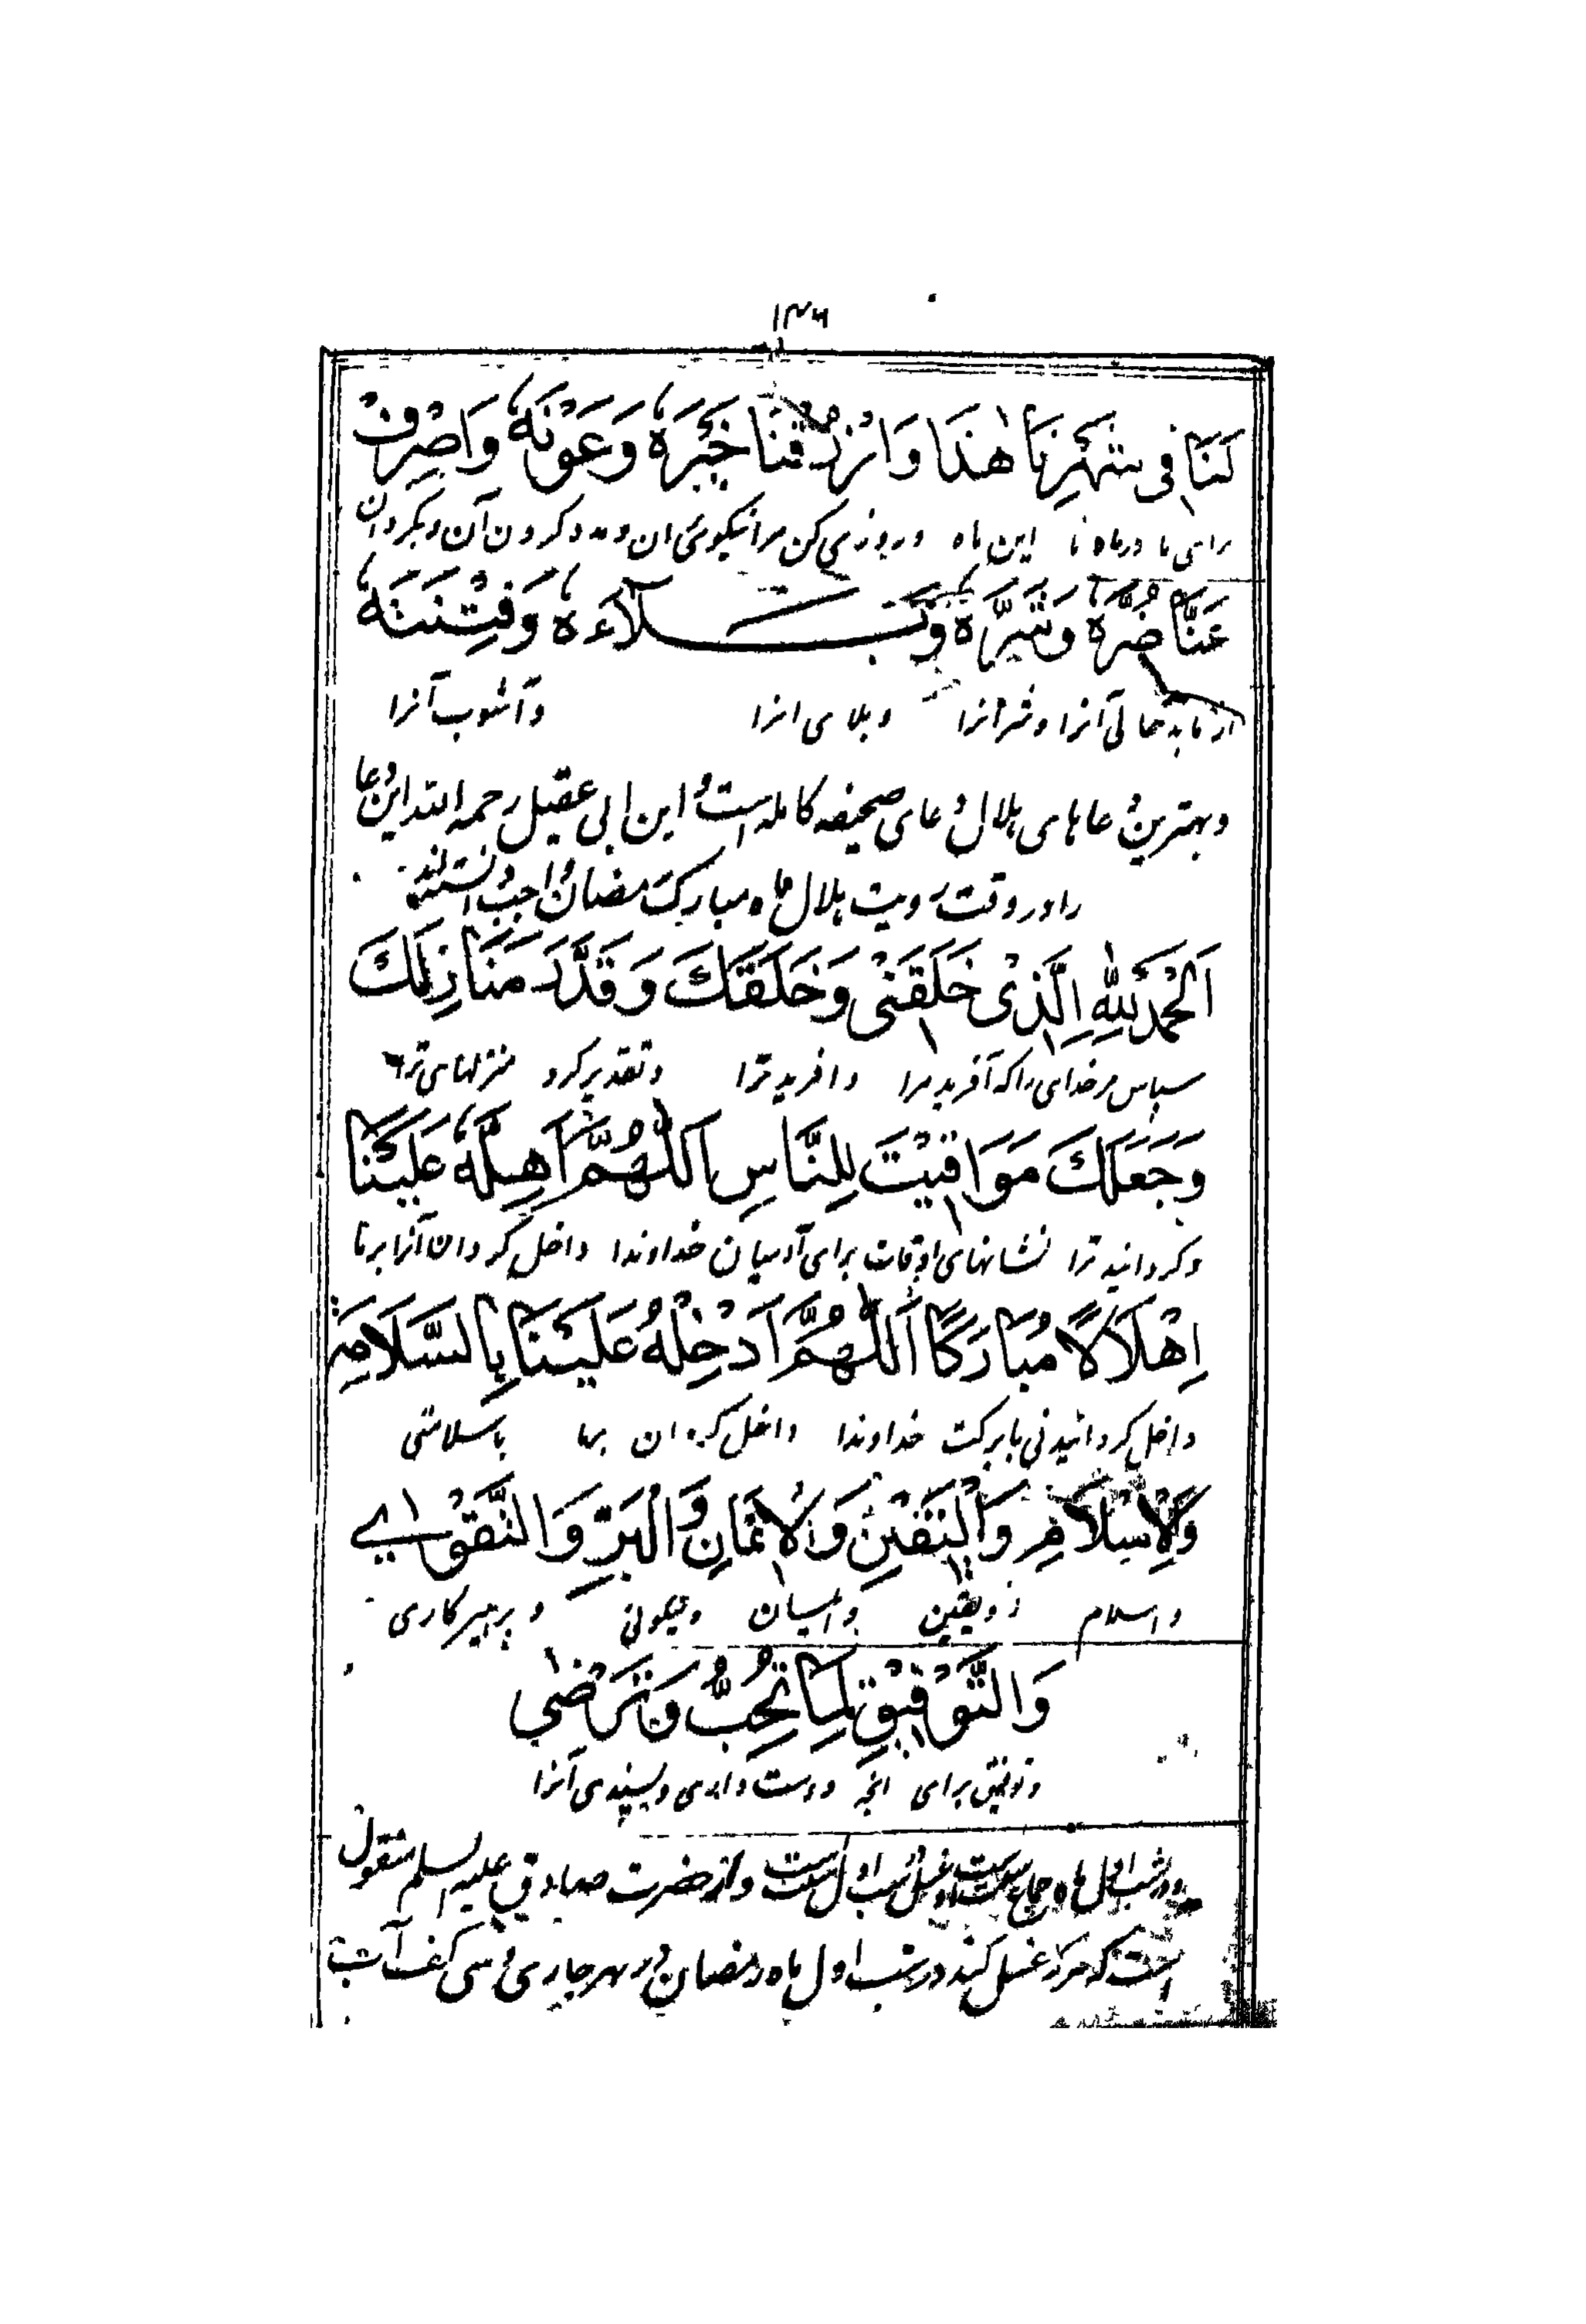 ۱۳۶
لَنَا فِي شَهْرِنَا هٰذَا وَارْزُقْنَا خَيْرَهُ وَعَوْنَهُ وَاصْرِفْ
برای ما در ماه ما این ماه و روزی کن مرا نیکوئی ان و مدد کردن آن و بگردان
عَنَّا ضُرَّهُ وَشَرَّهُ وَبَلَاءَهُ وَفِتْنَتَهُ
از ما بد حالی آنرا و شر آنرا و بلای انرا و آشوب آنرا
و بهترین دعاهای هلال دعای صحیفه کامله است و ابن ابی عقیل رحمه الله این دعا
را در وقت رویت هلال ماه مبارک رمضان واجب دانسته‌اند
اَلْحَمْدُ لِلّٰهِ الَّذِي خَلَقَنِي وَخَلَقَكَ وَقَدَّرَ مَنَازِلَكَ
سپاس مر خدای را که آفرید مرا و افرید ترا و تقدیر کرد منزلهای ترا
وَجَعَلَكَ مَوَاقِيْتَ لِلنَّاسِ اَللّٰهُمَّ اَهِلَّهُ عَلَيْنَا
و گردانید ترا نشانهای اوقات برای آدمیان خداوندا داخل گردان آنرا بر ما
اِهْلَالًا مُبَارَكًا اَللّٰهُمَّ اَدْخِلْهُ عَلَيْنَا بِالسَّلَامَةِ
داخل گردانیدنی با برکت خداوندا داخل گردان بما با سلامتی
وَالْاِسْلَامِ وَالْيَقِيْنِ وَالْاِيْمَانِ وَالْبِرِّ وَالتَّقْوٰي
و اسلام و یقین و ایمان و نیکوئی و پرهیزکاری
وَالتَّوْفِيْقِ لِمَا تُحِبُّ وَتَرْضٰي
و توفیق برای انچه دوست داری و بپسندی آنرا
و در شب اول ماه جماع سنت است و غسل شب اول سنت است و از حضرت صادق علیه السلم منقول
است که هرکه غسل کند در شب اول ماه رمضان در نهر جاری و سی کف آب